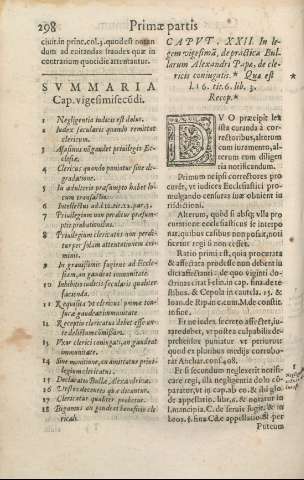 298 Primæ partis
ciuit. in princ. col. 3. quod est notan
dum ad euitandas fraudes quæ in
contrarium quotidie attentantur.
SVMMARIA
Cap. vigesimisecūdi.
1 Negligentia iudicis est dolus.
2 Iudex secularis quando remittat
clericum.
3 Assasinus nō gaudet priuilegio Ec-
clesiæ.
4 Clericus quando puniatur sine de-
gradatione.
5 In adulterio præsumpto habet lo-
cum transactio.
6 Intellectus ad l. 10. tit. 22. par. 3.
7 Priuilegium non perditur præsum-
ptis probationibus.
8 Priuilegium clericatus non perdi-
tur per solam attentationem cri-
minis.
9 In grauissimis fugiens ad Eccle-
siam, an gaudeat immunitate.
10 Inhibitus iudicis secularis qualiter
facienda.
11 Requisita vt clericus primæ ton-
suræ gaudeat immunitate.
12 Receptio clericatus debet esse an-
te delictum cōmissum.
13 Vxor clerici coniugati, an gaudeat
immunitate.
14 Sine monitione, an amittatur priui-
legium clericatus.
15 Declaratio Bullæ Alexandrinæ.
16
17 Clericatus qualiter probetur.
18 an gaudeant beneficio cle-
ricali.
CAPVT. XXII. In le-
gem vigesimā, de practica Bul-
larum Alexandri Papæ, de cle-
ricis coniugatis. * Quæ est
l. 16. tit. 6. lib. 3.
Recop. *
DVO præcipit lex
ista curanda à cor-
rectoribus, alterum
cum iuramento, al-
terum cum diligen
tia notificandum.
Primum ne ipsi correctores pro
curēt, vt iudices Ecclesiastici pro-
mulgando censuras suæ obuient iu
risdictioni.
Alterum, quòd si absq; vlla pro
curatione ecclesiasticus se interpo
nat, quibus causis non possit, noti
ficetur regi si non cesset.
Ratio primi est, quia procurata
& affectata prodesse non debent iu
dicta affectanti: de quo viginti do-
ctrinas citat Felin. in cap. fina. de te
stibus. & Cepola in cautela. 23. &
Ioan. de Rip. in c. cum. M. de constit.
in fine.
Et ne iudex secreto affectet, iu-
rare debet, vt postea culpabilis de-
prehensus puniatur vt periurus:
quod ex pluribus meritò corrobo-
rat Auiles. cor. fol. 98.
Et si secundum neglexerit notifi-
care regi, illa negligentia dolo cō-
paratur, vt in cap. ab eo. & ibi glo.
de appellatio. libr. 6. & notatur in
l. mancipia. C. de seruis fugit. & in
leo. 5. fina. C. de appellatio. si per
Puteum